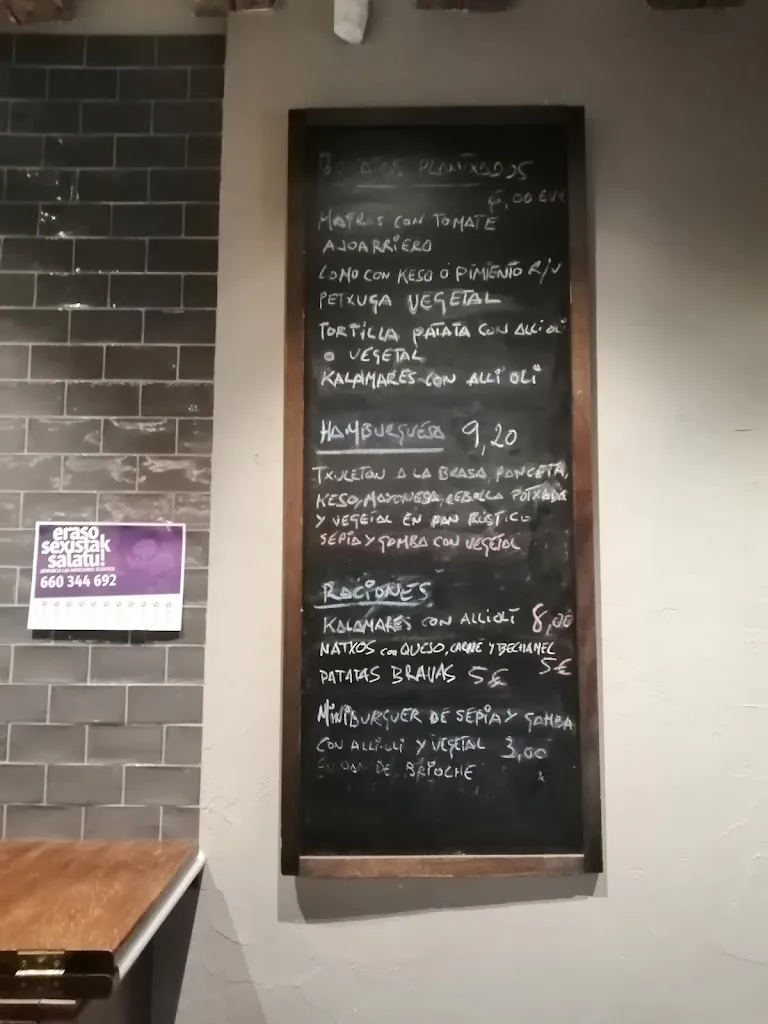 PLANTXADOS
,00 EUR
MAGRAS CON TOMATE
AJOARRIERO
LOMO CON KESO O PIMIENTO R/V
PETXUGA VEGETAL
TORTILLA PATATA CON ALLI OLI
O VEGETAL
KALAMARES CON ALLI OLI
HAMBURGUESA 9,20
TXULETON A LA BRASA, PANCETA,
KESO, MAYONESA, CEBOLLA POTXADA
Y VEGETAL EN PAN RÚSTICO
SEPIA Y GAMBA CON VEGETAL
RACIONES
KALAMARES CON ALLIOLI 8,00
NATXOS CON QUESO, CARNE Y BECHAMEL
5€
PATATAS BRAVAS 5€
MINIBURGUER DE SEPIA Y GAMBA
CON ALLIOLI Y VEGETAL 3,00
EN PAN DE BRIOCHE
eraso
sexistak
salatu!
660 344 692